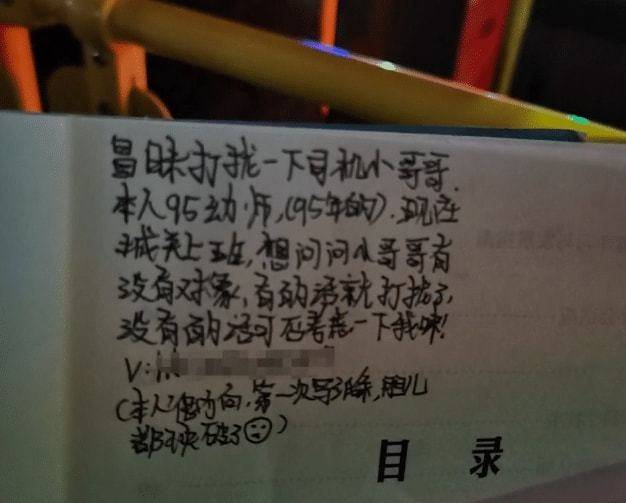 冒昧打扰一下司机小哥哥.
本人95幼师,(95年的).现在
城关上班,想问问小哥哥有
没有对象,有的话就打扰了,
没有的话可否考虑一下我呀!
V:
(本人偏内向,第一次写了条,胆儿
都快破了☹)
目 录